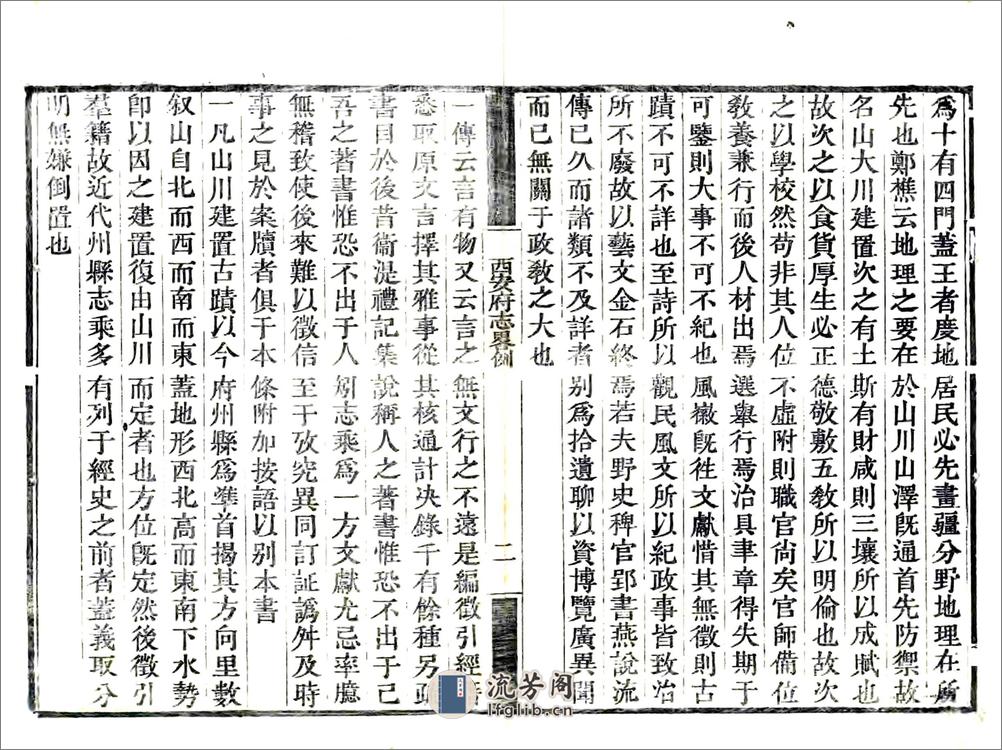 爲十有四門蓋王者度地居民必先畫疆分野地理在所
先也鄭樵云地理之要在於山川山澤旣通首先防禦故
名山大川建置次之有土斯有財咸則三壤所以成賦也
故次之以食貨厚生必正德敬敷五敎所以明倫也故次
之以學校然苟非其人位不虛附則職官尙矣官師備位
敎養兼行而後人材出焉選舉行焉治具畢章得失期于
可鑒則大事不可不紀也風徽旣徃文獻惜其無徵則古
蹟不可不詳也至詩所以觀民風文所以紀政事皆致治
所不廢故以藝文金石終焉若夫野史稗官郢書燕說流
傳已久而諸類不及詳者別爲拾遺聊以資博覽廣異聞
而已無關于政敎之大也
西安府志畧例
二
一傳云言有物又云言之無文行之不遠是編徵引經
悉取原文言擇其雅事從其核通計决錄千有餘種另
書目於後昔衞湜禮記集說稱人之著書惟恐不出于己
吾之著書惟恐不出于人矧志乘爲一方文獻尤忌率臆
無稽致使後來難以徵信至于攷究異同訂証譌舛及時
事之見於案牘者俱于本條附加按語以别本書
一凡山川建置古蹟以今府州縣爲準首揭其方向里數
叙山自北而西而南而東蓋地形西北高而東南下水勢
卽以因之建置復由山川而定者也方位旣定然後徵引
羣籍故近代州縣志乘多有列于經史之前者蓋義取分
明無嫌倒置也
流芳阁
lfglib.cn